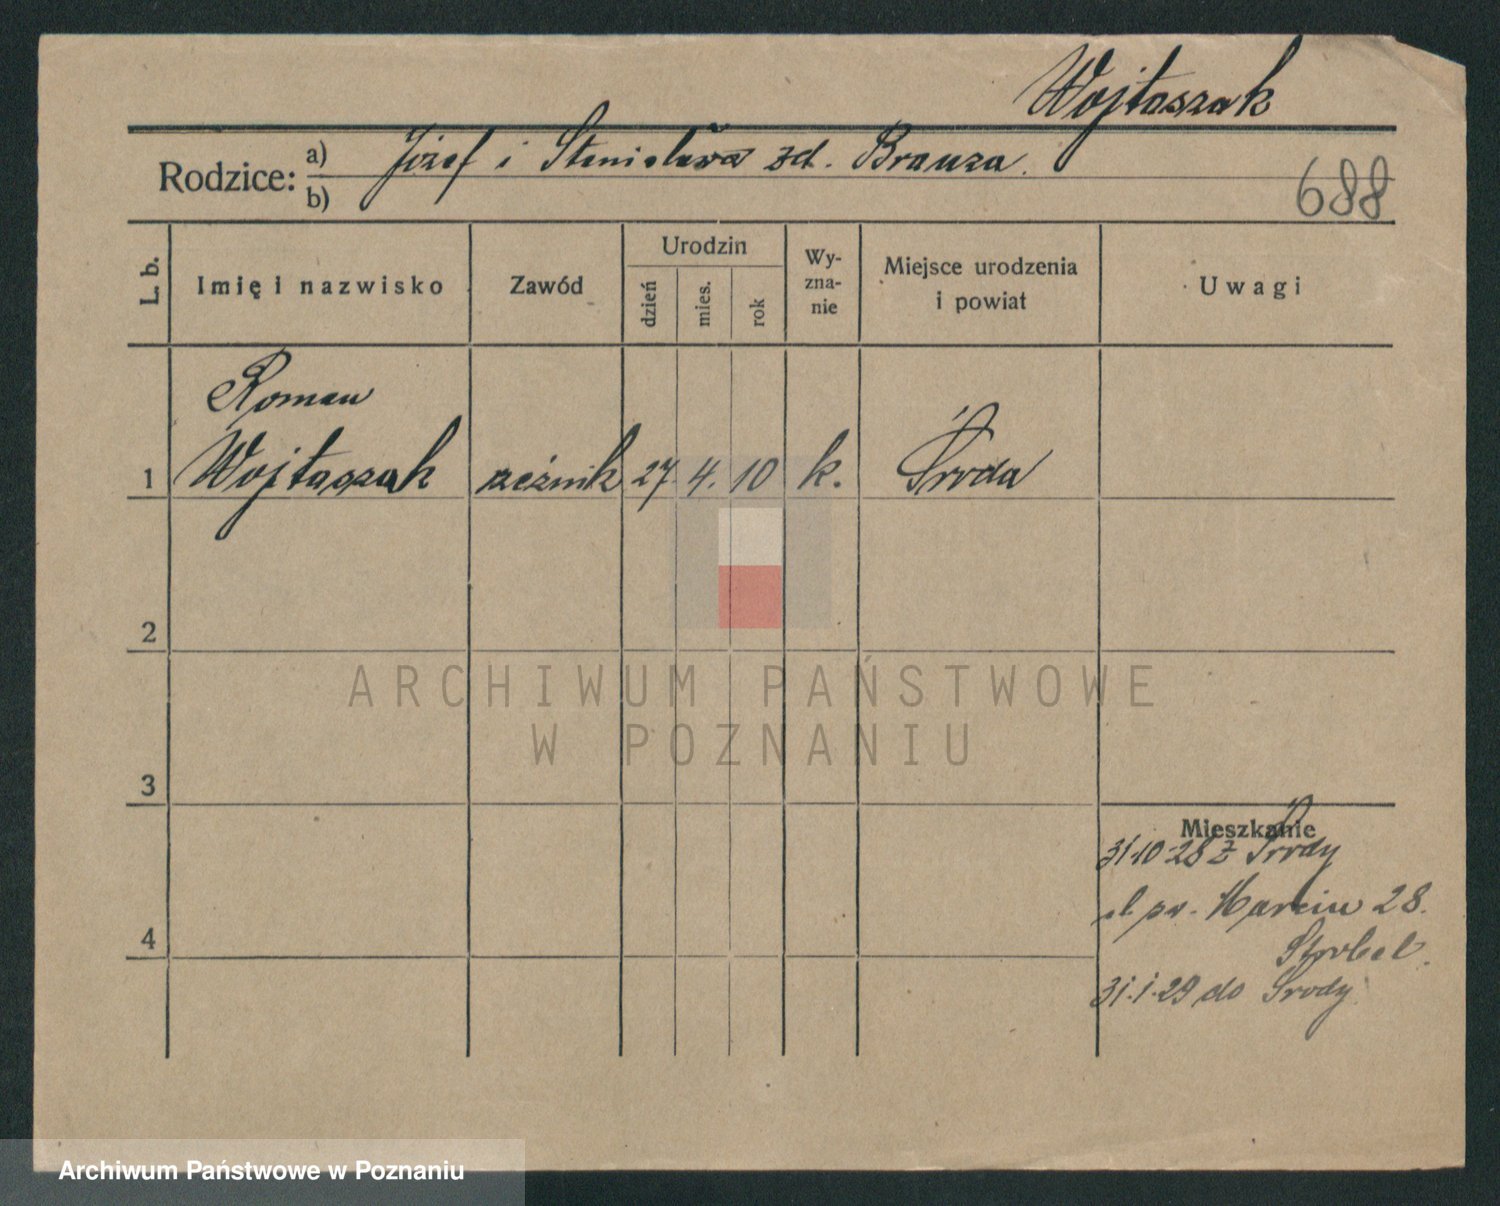 Wojtaszak
Rodzice: a) Józef i Stanisława zd. Brauza.
b)
688
L. b.
Imię i nazwisko
Zawód
Urodzin
dzień
mies.
rok
Wy-
zna-
nie
Miejsce urodzenia
i powiat
Uwagi
Roman
1 Wojtaszak rzeźnik 27. 4. 10 k. Środa
2
ARCHIWUM PAŃSTWOWE
W POZNANIU
3
Mieszkanie
31.10.28 z Środy
św. Marcin 28.
4
Strobel.
31.1.29 do Środy
Archiwum Państwowe w Poznaniu